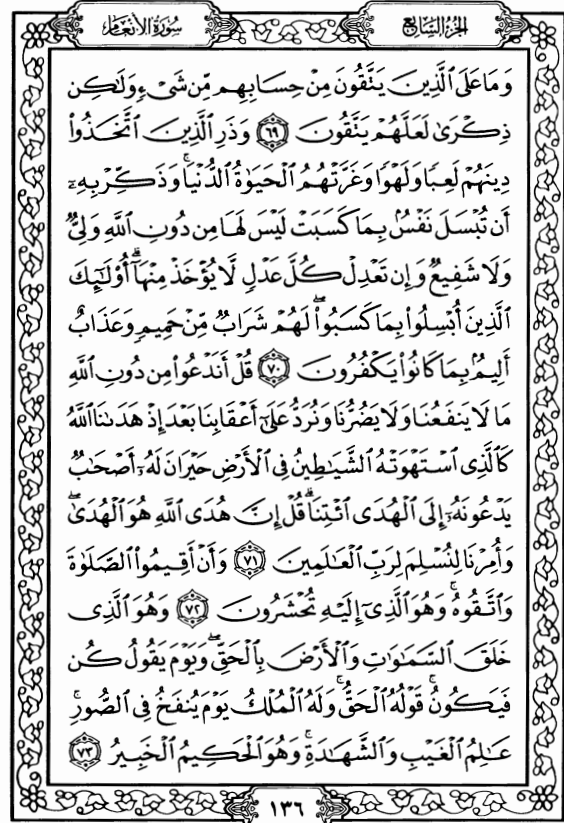 سُورَةُ الأَنْعَام
الجُزءُ السَّابِعُ
وَمَا عَلَى ٱلَّذِينَ يَتَّقُونَ مِنْ حِسَابِهِم مِّن شَىْءٍ وَلَـٰكِن
ذِكْرَىٰ لَعَلَّهُمْ يَتَّقُونَ ٦٩ وَذَرِ ٱلَّذِينَ ٱتَّخَذُوا۟
دِينَهُمْ لَعِبًا وَلَهْوًا وَغَرَّتْهُمُ ٱلْحَيَوٰةُ ٱلدُّنْيَا ۚ وَذَكِّرْ بِهِۦٓ
أَن تُبْسَلَ نَفْسٌۢ بِمَا كَسَبَتْ لَيْسَ لَهَا مِن دُونِ ٱللَّهِ وَلِىٌّ
وَلَا شَفِيعٌ وَإِن تَعْدِلْ كُلَّ عَدْلٍ لَّا يُؤْخَذْ مِنْهَآ ۗ أُو۟لَـٰٓئِكَ
ٱلَّذِينَ أُبْسِلُوا۟ بِمَا كَسَبُوا۟ ۖ لَهُمْ شَرَابٌ مِّنْ حَمِيمٍ وَعَذَابٌ
أَلِيمٌۢ بِمَا كَانُوا۟ يَكْفُرُونَ ٧٠ قُلْ أَنَدْعُوا۟ مِن دُونِ ٱللَّهِ
مَا لَا يَنفَعُنَا وَلَا يَضُرُّنَا وَنُرَدُّ عَلَىٰٓ أَعْقَابِنَا بَعْدَ إِذْ هَدَىٰنَا ٱللَّهُ
كَٱلَّذِى ٱسْتَهْوَتْهُ ٱلشَّيَـٰطِينُ فِى ٱلْأَرْضِ حَيْرَانَ لَهُۥٓ أَصْحَـٰبٌ
يَدْعُونَهُۥٓ إِلَى ٱلْهُدَى ٱئْتِنَا ۗ قُلْ إِنَّ هُدَى ٱللَّهِ هُوَ ٱلْهُدَىٰ ۖ
وَأُمِرْنَا لِنُسْلِمَ لِرَبِّ ٱلْعَـٰلَمِينَ ٧١ وَأَنْ أَقِيمُوا۟ ٱلصَّلَوٰةَ
وَٱتَّقُوهُ ۚ وَهُوَ ٱلَّذِىٓ إِلَيْهِ تُحْشَرُونَ ٧٢ وَهُوَ ٱلَّذِى
خَلَقَ ٱلسَّمَـٰوَٰتِ وَٱلْأَرْضَ بِٱلْحَقِّ ۖ وَيَوْمَ يَقُولُ كُن
فَيَكُونُ ۚ قَوْلُهُ ٱلْحَقُّ ۚ وَلَهُ ٱلْمُلْكُ يَوْمَ يُنفَخُ فِى ٱلصُّورِ ۚ
عَـٰلِمُ ٱلْغَيْبِ وَٱلشَّهَـٰدَةِ ۚ وَهُوَ ٱلْحَكِيمُ ٱلْخَبِيرُ ٧٣
١٣٦